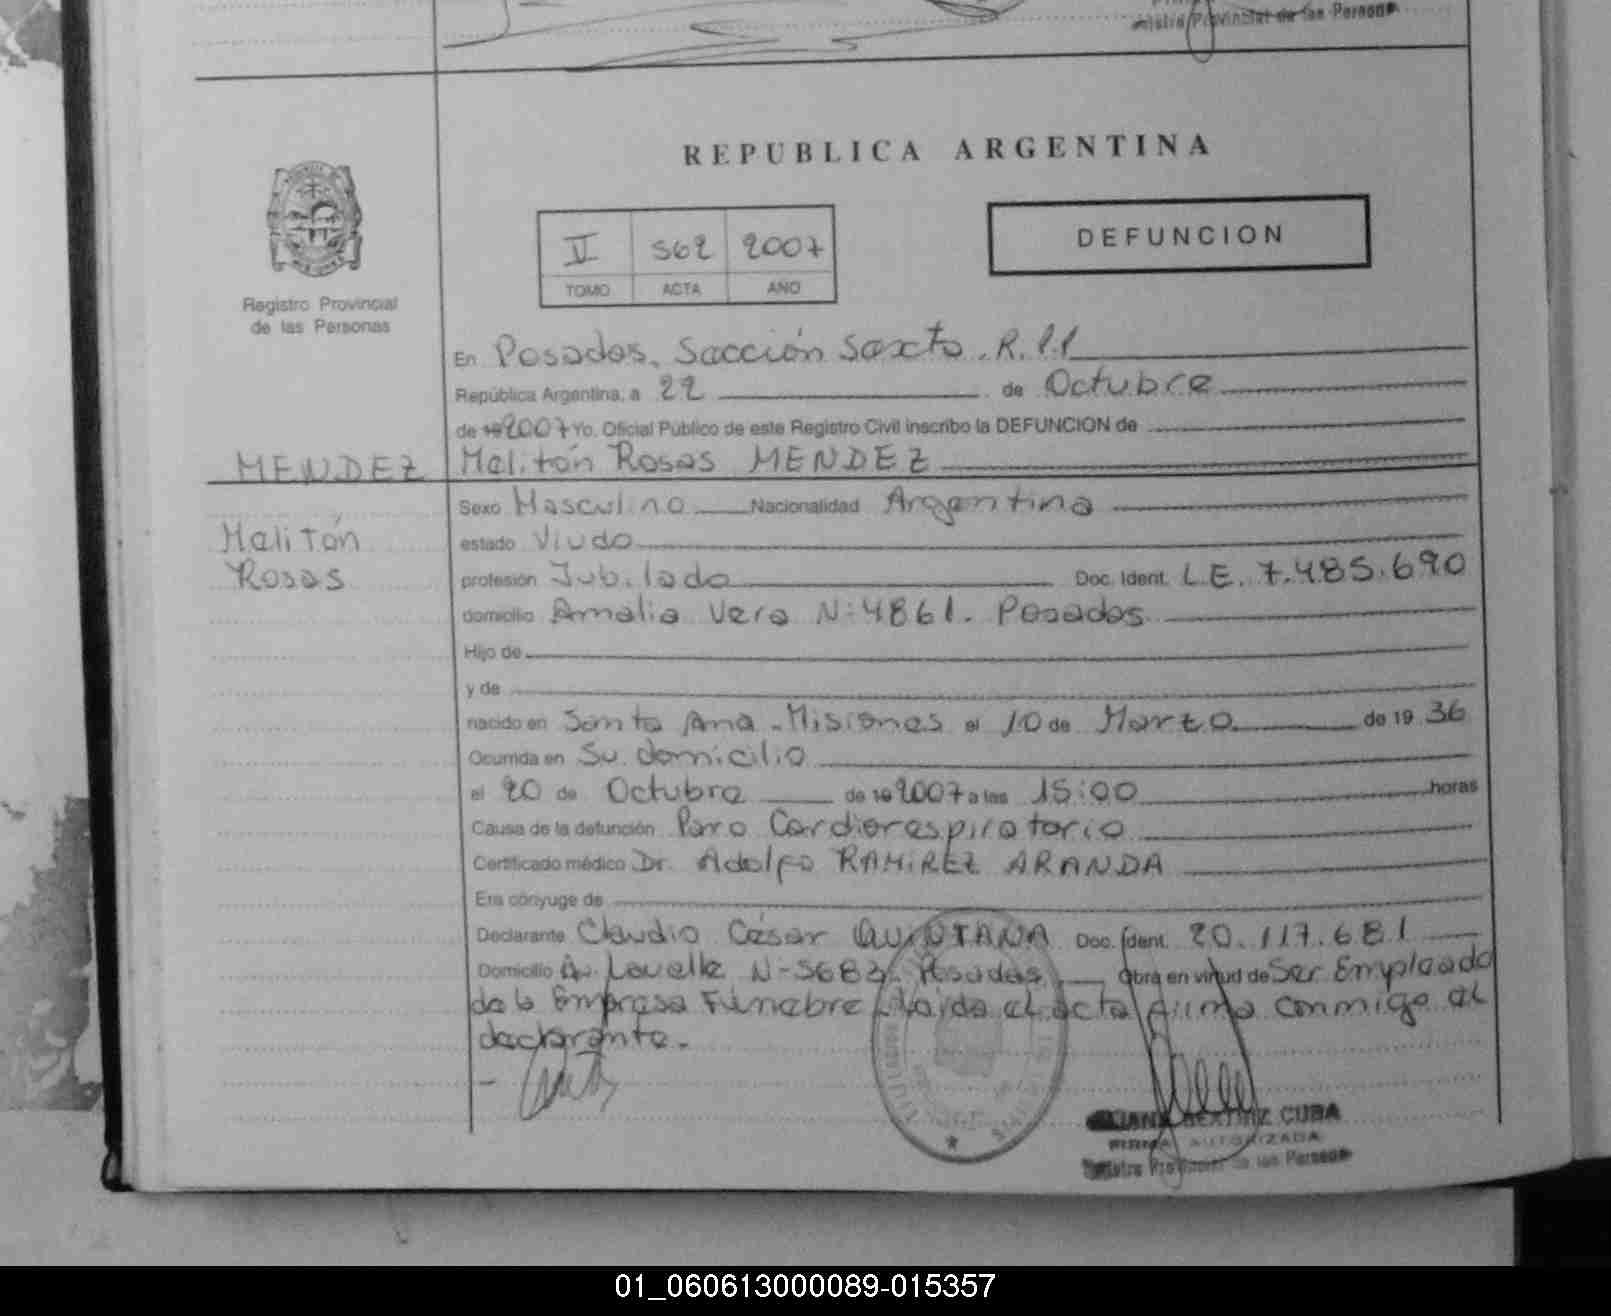 Provincial de las Personas
REPUBLICA ARGENTINA
DEFUNCION
II 562 2007
TOMO ACTA AÑO
Registro Provincial
de las Personas
En Posadas, Sección Sexta. R.P.P
República Argentina, a 22 de Octubre
de 19 2007 Yo, Oficial Público de este Registro Civil inscribo la DEFUNCION de
MENDEZ
Melitón Rosas MENDEZ
Melitón
Rosas
Sexo Masculino Nacionalidad Argentina
estado Viudo
profesión Jubilado Doc. Ident. L.E. 7.485.690
domicilio Amalia Vera N: 4861. Posadas
Hijo de
y de
nacido en Santa Ana - Misiones el 10 de Marzo de 19 36
Ocurrida en Su domicilio
el 20 de Octubre de 19 2007 a las 15:00 horas
Causa de la defunción Paro Cardiorespiratorio
Certificado médico Dr. Adolfo RAMIREZ ARANDA
Era cónyuge de
Declarante Claudio César QUINTANA Doc. Ident. 20.117.681
Domicilio Av. Lavalle N-5683. Posadas Obra en virtud de Ser Empleado
de la Empresa Fúnebre Leída el acta firma conmigo el
declarante.
BEATRIZ CUBA
FIRMA AUTORIZADA
Registro Provincial de las Personas
01_060613000089-015357